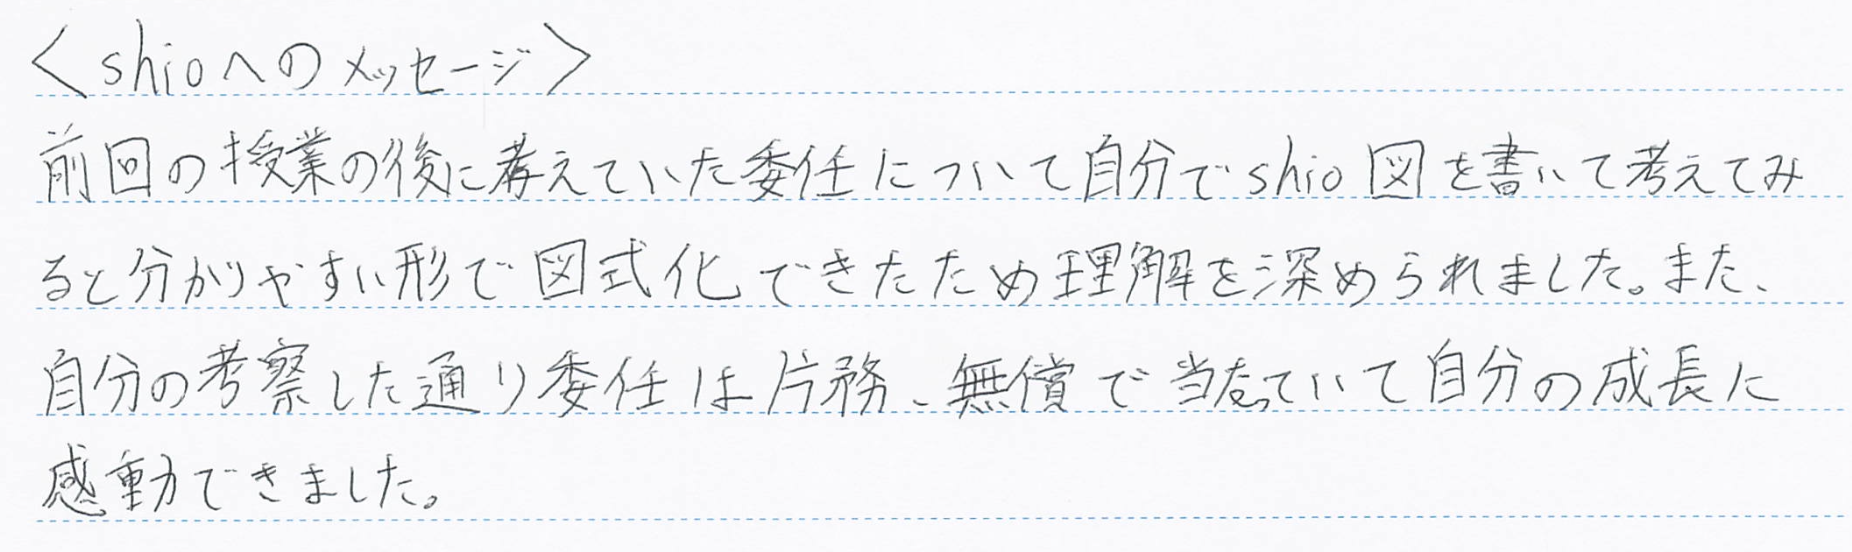 ＜shioへのメッセージ＞
前回の授業の後に考えていた委任について自分でshio図を書いて考えてみ
ると分かりやすい形で図式化できたため理解を深められました。また、
自分の考察した通り委任は片務、無償で当たっていて自分の成長に
感動できました。